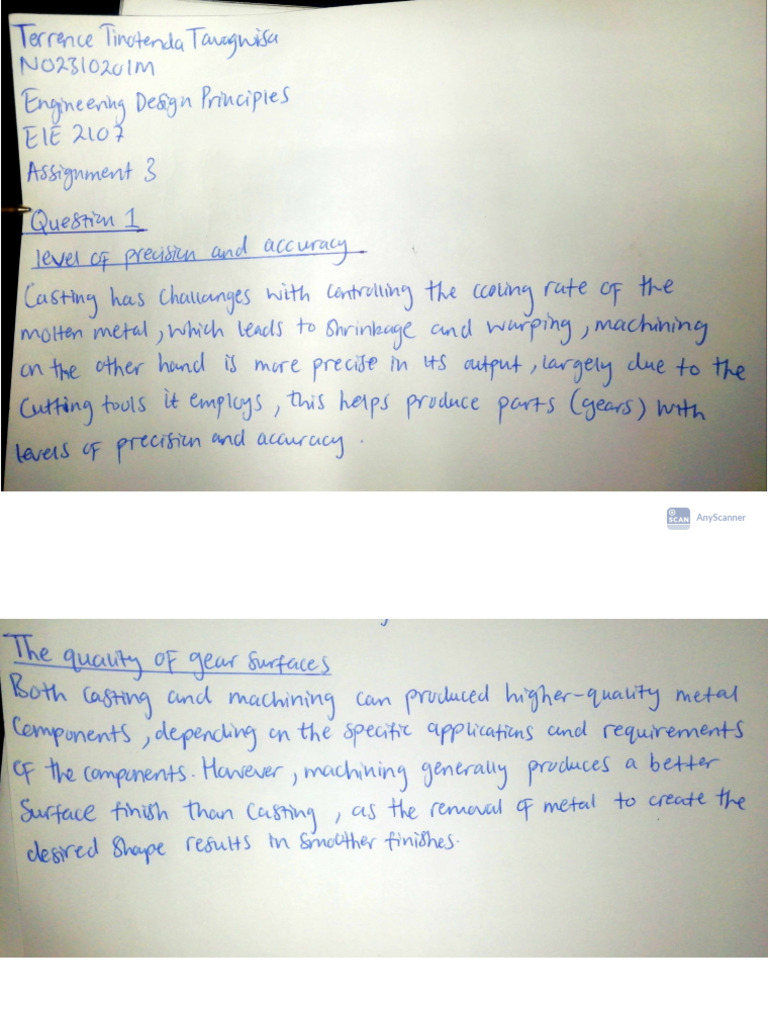 Terrence Tinotenda Tavagwisa
N02310201M
Engineering Design Principles
EIE 2107
Assignment 3
Question 1
level of precision and accuracy
Casting has challanges with controlling the cooling rate of the
molten metal, which leads to shrinkage and warping, machining
on the other hand is more precise in its output, largely due to the
cutting tools it employs, this helps produce parts (gears) with
levels of precision and accuracy.
SCAN AnyScanner
The quality of gear surfaces
Both casting and machining can produced higher-quality metal
components, depending on the specific applications and requirements
of the components. However, machining generally produces a better
surface finish than casting, as the removal of metal to create the
desired shape results in smoother finishes.